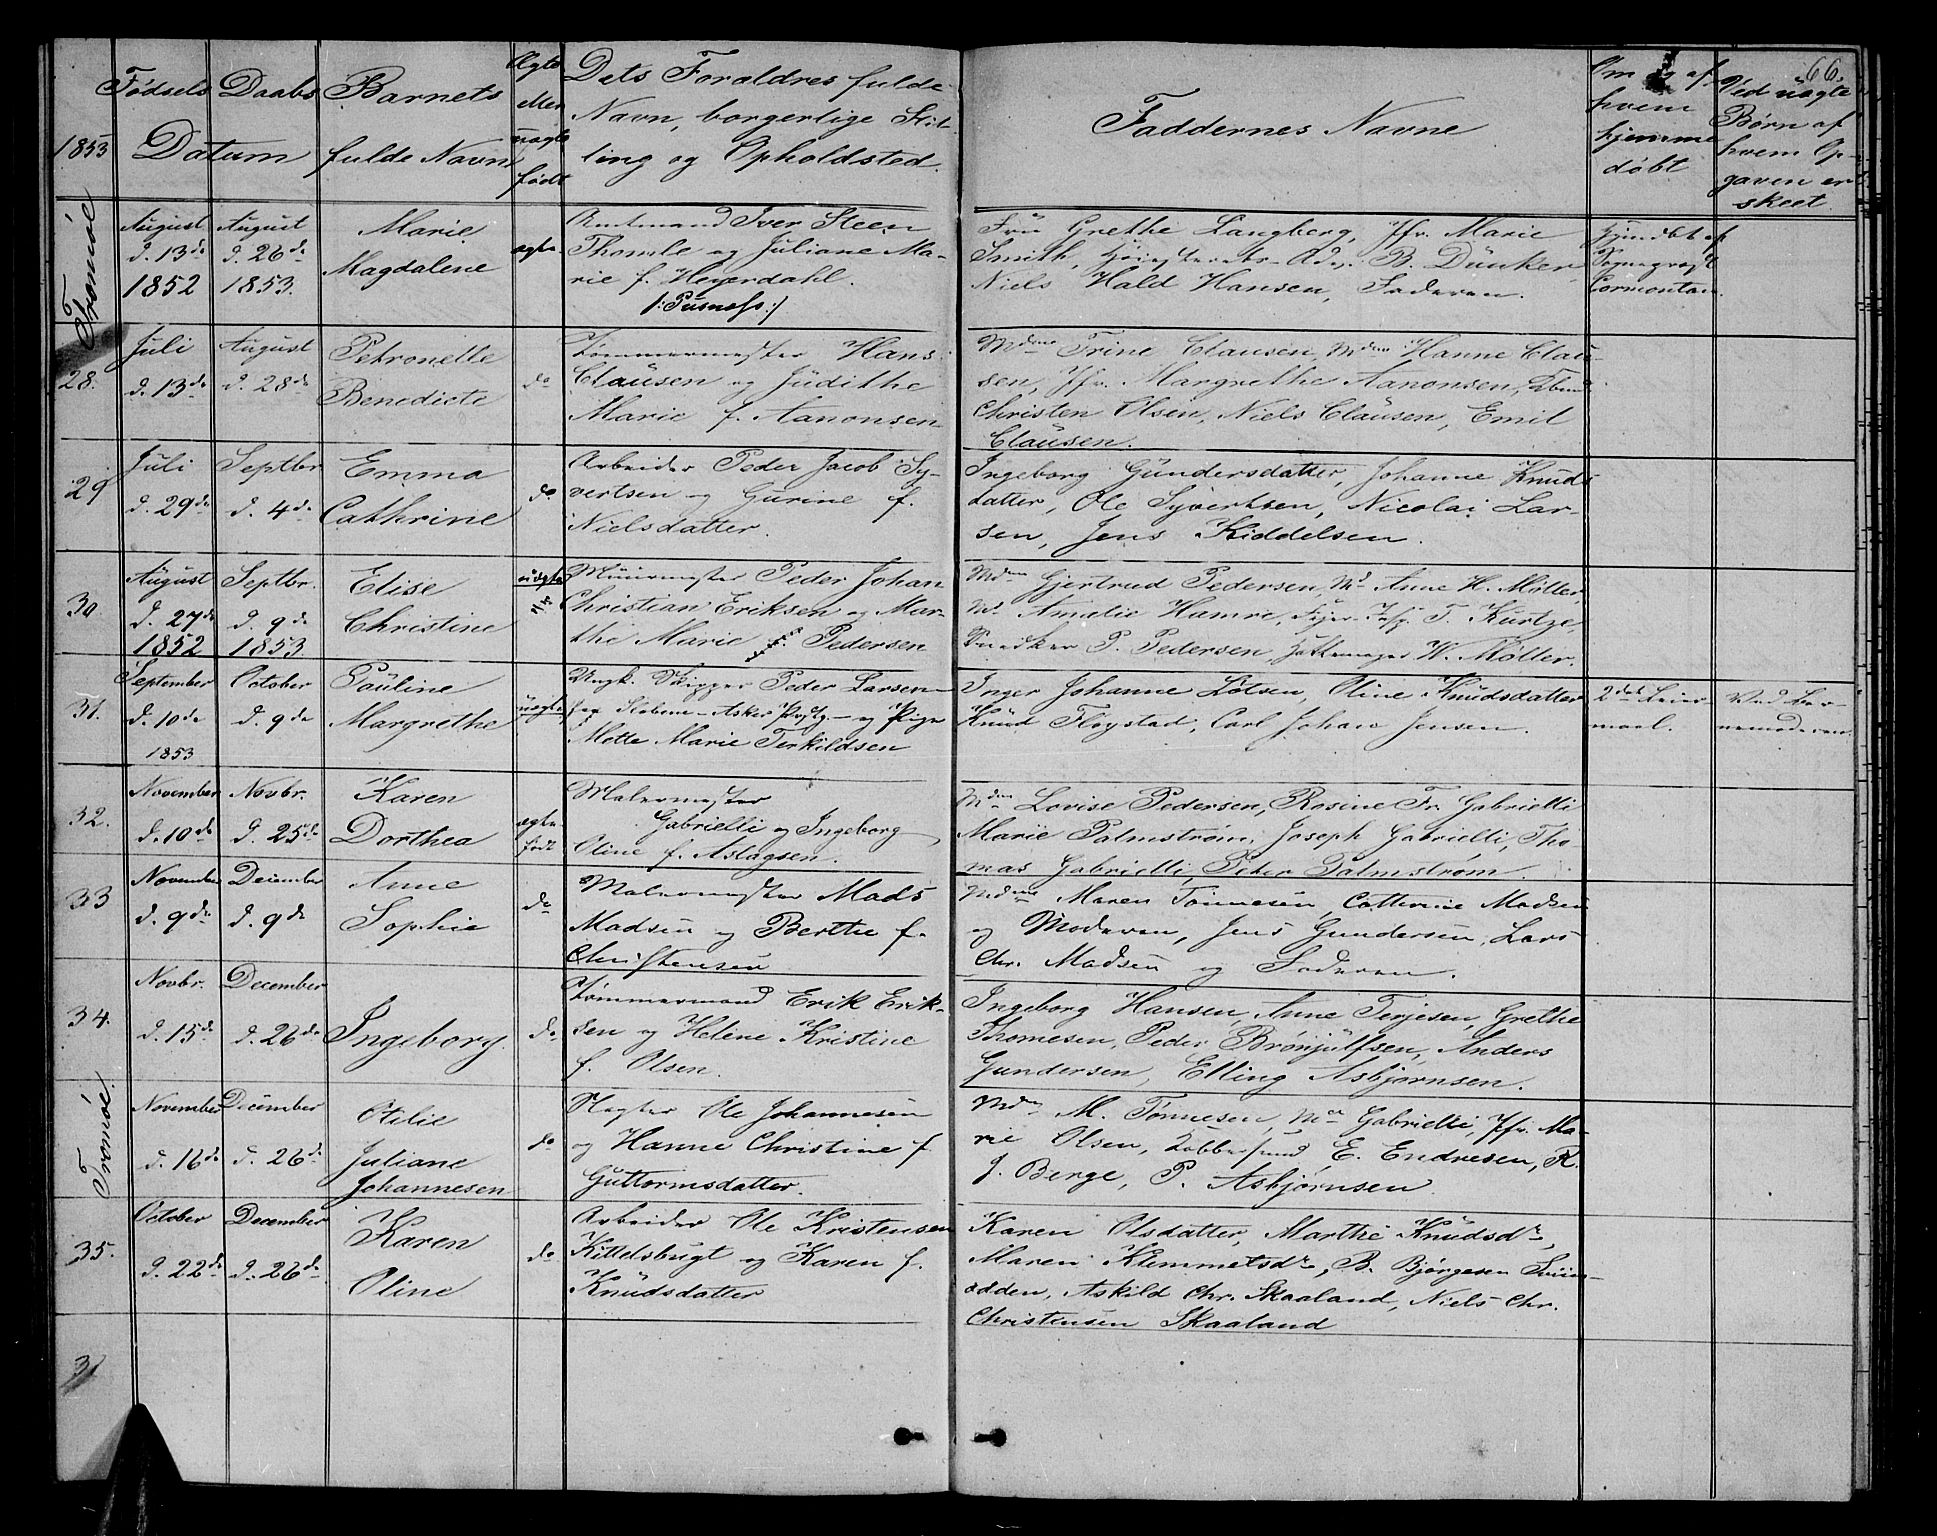 66.
1853
Fødsels Daabs
Datum
Barnets
fulde Navn
Ægte
eller
uægte
født
Dets Forældres fulde
Navn, borgerlige Stil-
ling og Opholdsted.
Faddernes Navne
Om og af
hvem
hjemme
døbt
Ved uægte
Børn af
hvem Op-
gaven er
skeet.
Tromöe
August
d. 13de
1852
August
d. 26de
1853.
Marie
Magdalene
ægte
Amtmand Iver Steen
Thomle og Juliane Ma-
rie f. Heyerdahl.
/: Pusnæs :/
Frü Grethe Langberg, Jfr. Marie
Smith, Høiesterets-Adv. B. Dünker,
Niels Hald Hansen, Faderen.
Hjemdöbt af
Sogneprest
Cormontan.
28.
Juli
d. 13de
August
d. 28de
Petronelle
Benedicte
do
Tømmermester Hans
Claüsen og Jüdithe
Marie f. Aanonsen
Mdme Trine Clausen, Mdme Hanne Clau-
sen, Jfr. Margrethe Aanonsen,
Christen Olsen, Niels Claüsen, Emil
Claüsen.
29
Juli
d. 29de
Septbr
d. 4de
Emma
Cathrine
do
Arbeider Peder Jacob Sy-
vertsen og Gurine f.
Nielsdatter.
Ingeborg Gündersdatter, Johanne Knüds
datter, Ole Syvertsen, Nicolai Lar-
sen, Jens Kiddelsen.
30.
August
d. 27de
1852
Septbr.
d. 9de
1853
Elise
Christine
uægte
Müürmester Peder Johan
Christian Eriksen og Mar-
the Marie f. Pedersen
Mdme Gjertrud Pedersen, Md Anne H. Møller,
Md Amalie Hamre, Fyr-Insp. T. Kurtze,
Snedker P. Pedersen, Hattemager W. Møller.
31.
September
d. 10de
1853
October
d. 9de
Paüline
Margrethe
uægte
Ungk. Skipper Peder Larsen
fra Asker Prstg. og Pige
Mette Marie Terkildsen
Inger Johanne Lotsen, Oline Knudsdatter
Knüd Fløystad, Carl Johan Jensen.
2det Leier-
maal.
Ved Bar-
nemoderen
32.
November
d. 10de
Novbr.
d. 25de
Karen
Dorthea
ægte
født
Malermester
Gabrielli og Ingeborg
Oline f. Aslagsen.
Mdm Lovise Pedersen, Rosine Fr. Gabrielli
Marie Palmstrøm, Joseph Gabrielli, Tho
mas Gabrielli, Peter Palmstrøm.
33
November
d. 9de
December
d. 9de
Anne
Sophie
do
Malermester Mads
Madsen og Berthe f.
Christensen
Mdme Maren Tønnesen, Cathrine Madsen
og Moderen, Jens Gundersen, Lars
Chr. Madsen og Faderen.
34.
Novbr.
d. 15de
December
d. 26de
Ingeborg.
do
Tømmermand Erik Erik-
sen og Helene Kristine
f. Olsen.
Ingeborg Hansen, Anne Terjesen, Grethe
Thomesen, Peder Brønjülfsen, Anders
Gundersen, Elling Asbjørnsen.
Tromöe.
November
d. 16de
December
d. 26de
Otilie
Juliane
Johannesen
do
Slagter Ole Johannesen
og Hanne Christine f.
Guttormsdatter.
Mdm M. Tønnesen, Mdm Gabrielli, Jfr. Ma-
rie Olsen, Kobbersmed E. Endresen, R.
J. Berge, P. Asbjørnsen.
35.
October
d. 22de
December
d. 26de
Karen
Oline
do
Arbeider Ole Kristensen
Kittelsbugt og Karen f.
Knüdsdatter
Karen Olsdatter, Marthe Knüdsdr,
Maren Klemmetsdr, B. Bjørgesen Sviin-
odden, Askild Chr. Skaaland, Niels Chr.
Christensen Skaaland
3